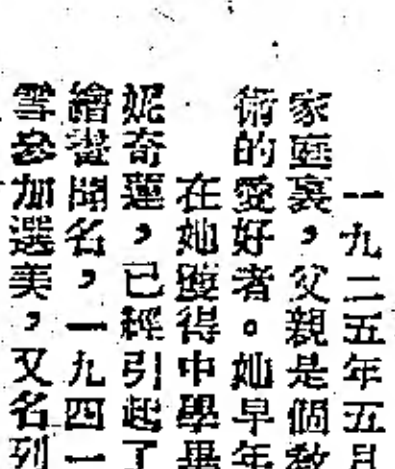 一九二五年五月
家庭裏，父親是個教
術的愛好者。她早年
在她獲得中學畢
妮奇蓮，已經引起了
繪畫聞名，一九四一
雪參加選美，又名列